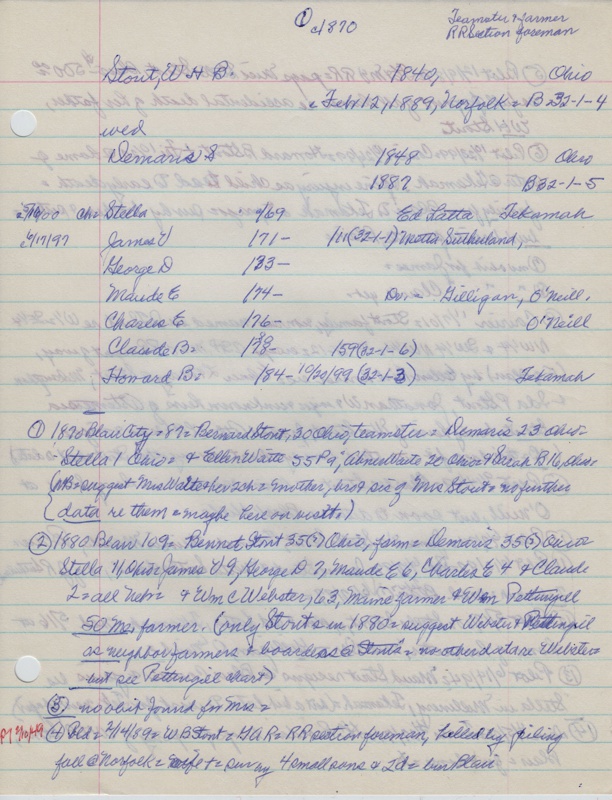 ① c/1870
Teamster & farmer
RR section foreman
Stout, W. H. B. 1840, Ohio
Feb 12, 1889, Norfolk = B 32-1-4
wed
Demaris S 1848 Ohio
1887 B 32-1-5
ch = Stella /69 Ed Latta Tekamah
6/17/97 James V /71- /11 (32-1-1) Sutherland,
George D /83-
Maude E /74- Dr. = Gilligan, O'Neill.
Charles E /76- O'Neill
Claude B = /78- /59 (32-1-6)
Howard B = /84- 10/20/99 (32-1-3) Tekamah
① 1870 Blair City = 87 = Bernard Stout, 30 Ohio, teamster = Demaris 23 Ohio =
Stella 1 Ohio = & Ellen Waite 55 Pa, Abner Waite 20 Ohio & Sarah B 16, Ohio =
(NB = suggest Mrs Waite & her 2 ch = mother, bro & sis of Mrs Stout = no further
data re them = maybe here on visit = )
② 1880 Blair 109 = Bennet Stout 35(?) Ohio, farm = Demaris 35(?) Ohio =
Stella 11 Ohio = James V 9, George D 7, Maude E 6, Charles E 4 & Claude
2 = all Neb = & Wm C Webster, 63, Maine farmer & Wm Pettingill
50 Me, farmer. (only Stouts in 1880 = suggest Webster & Pettingill
as neighbor farmers & boarders @ Stouts = no other data re Webster =
but see Pettingill chart)
③ no obit found for Mrs =
④ Pilot = 2/14/89 = W B Stout = GAR = RR section foreman, killed by piling
fall @ Norfolk = wife + = surv by 4 small sons & 2 d = bur Blair